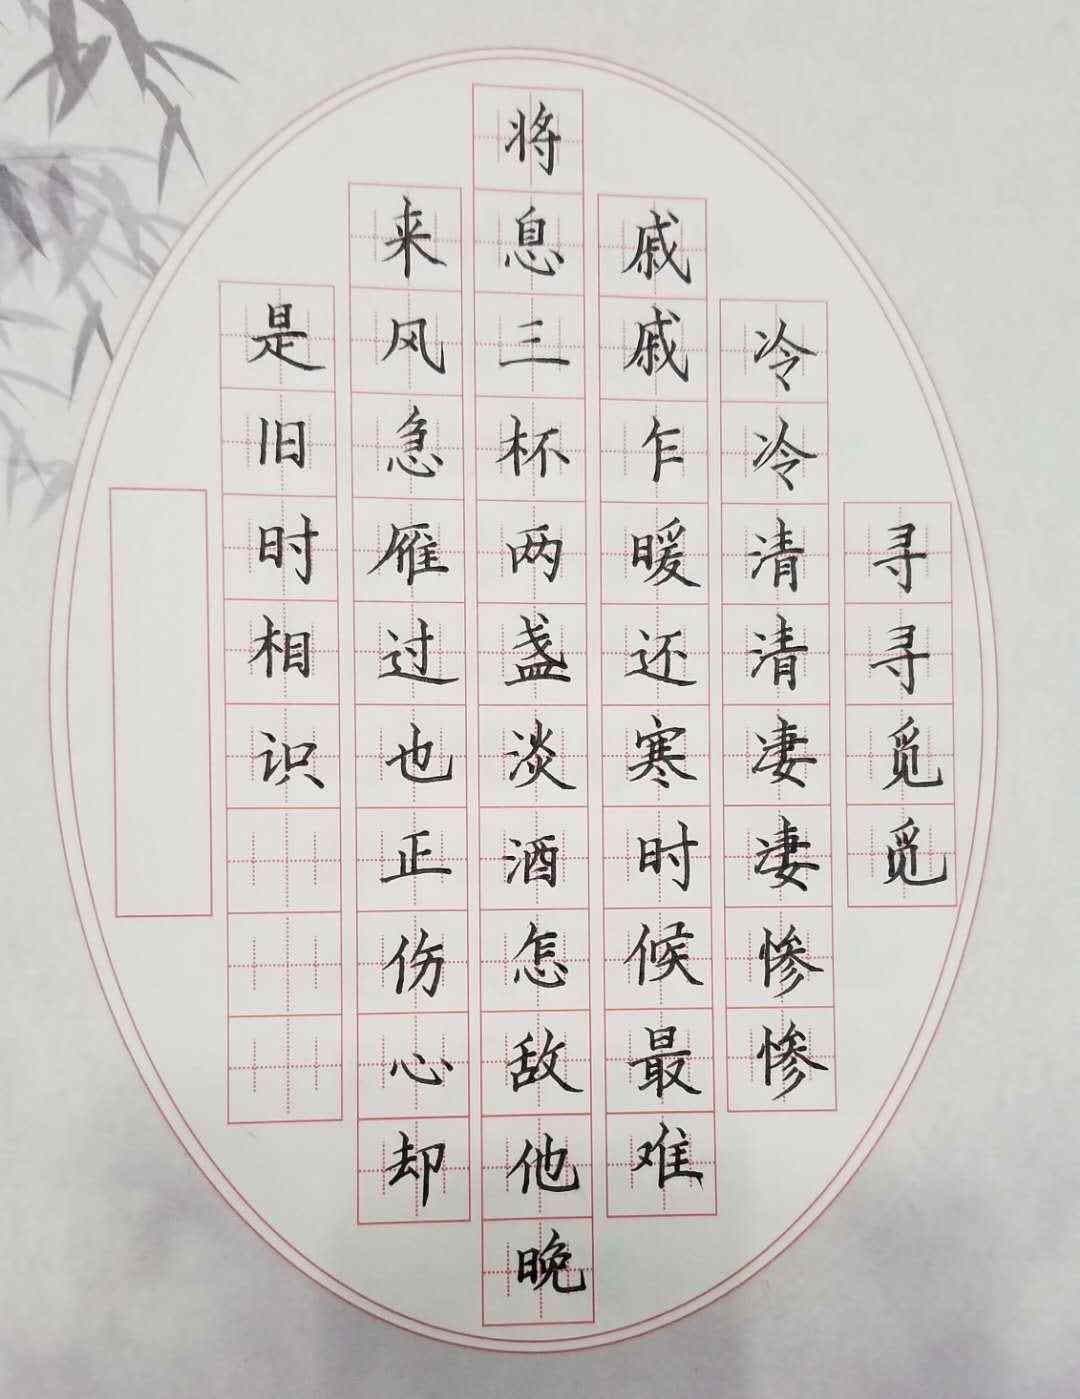 寻寻觅觅
冷冷清清凄凄惨惨
戚戚乍暖还寒时候最难
将息三杯两盏淡酒怎敌他晚
来风急雁过也正伤心却
是旧时相识